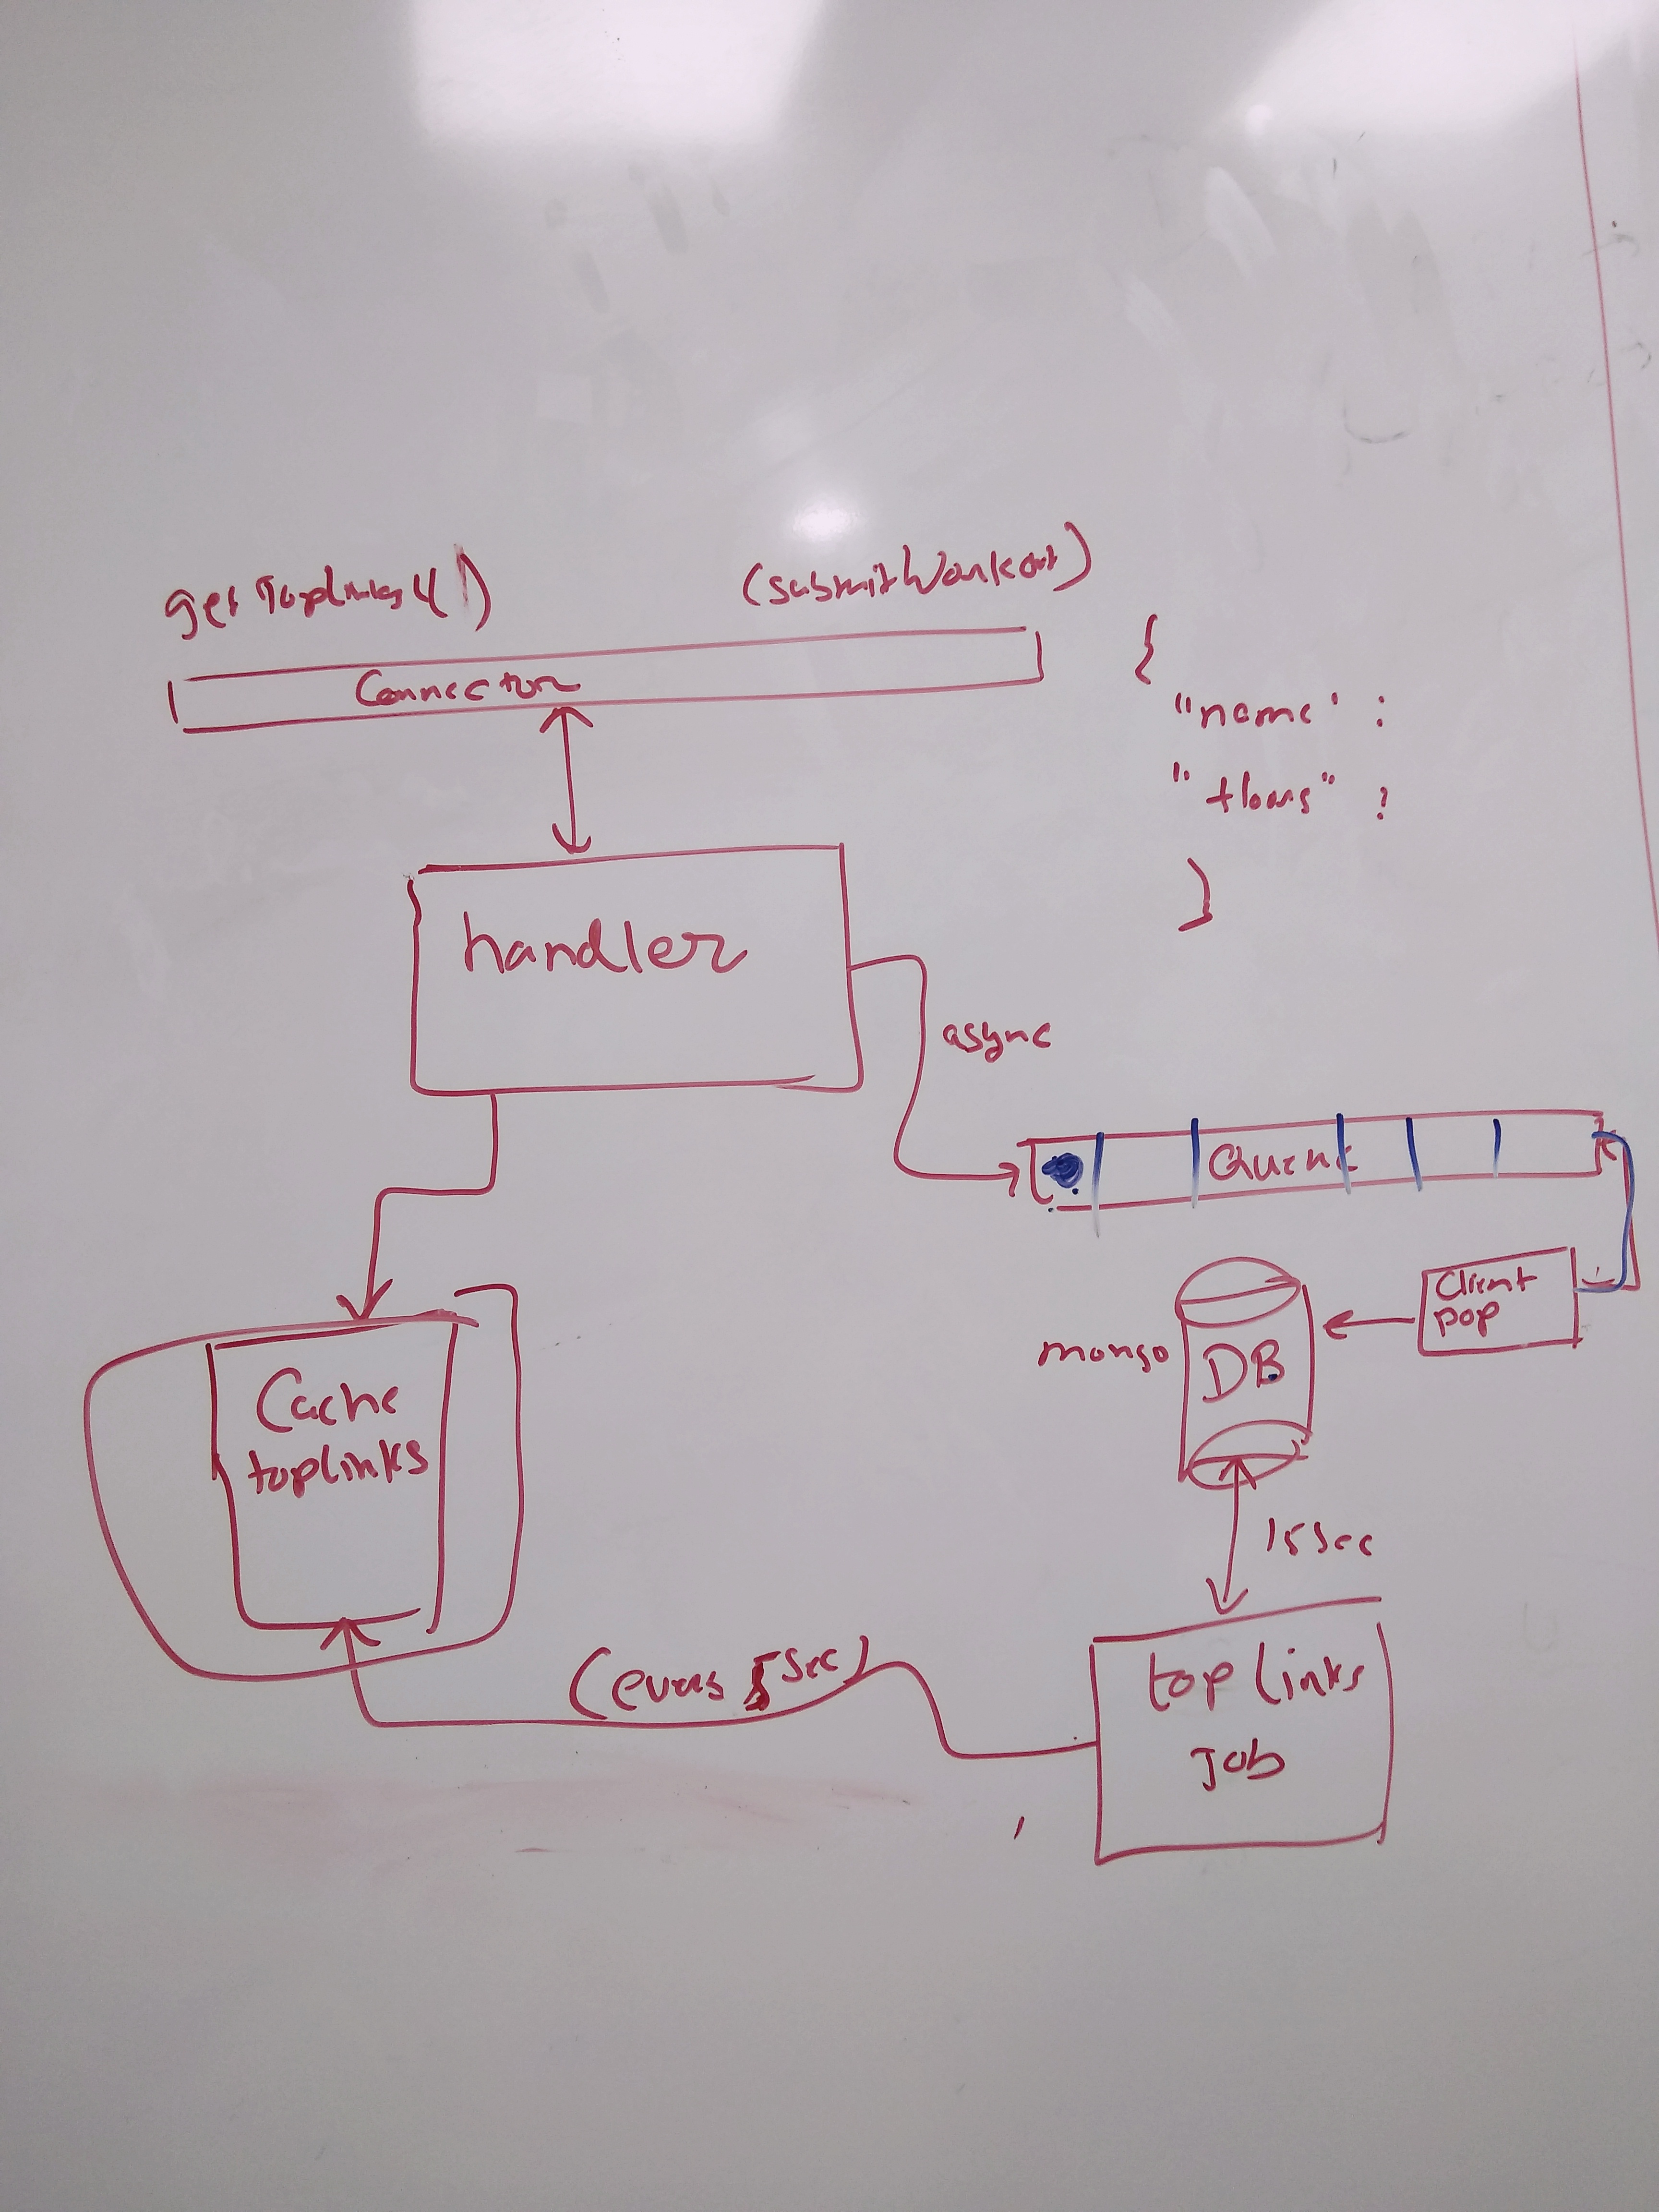 getTopLinks()
(submitWorkout)
Connector
{
"name" :
" " :
}
handler
async
Queue
Client
pop
mongo
DB
Cache
toplinks
15 sec
(every 5 sec)
top links
Job